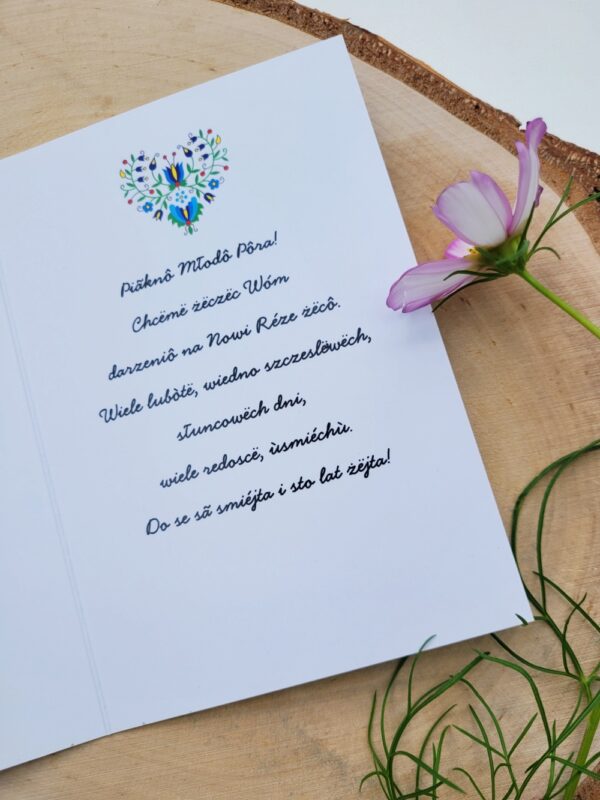 Piãknô Młodô Pôra!
Chcëmë żëczëc Wóm
darzeniô na Nowi Réze żëcô.
Wiele lubòtë, wiedno szczeslëwëch,
słuncowëch dni,
wiele redoscë, ùsmiéchù.
Do se sã smiéjta i sto lat żëjta!